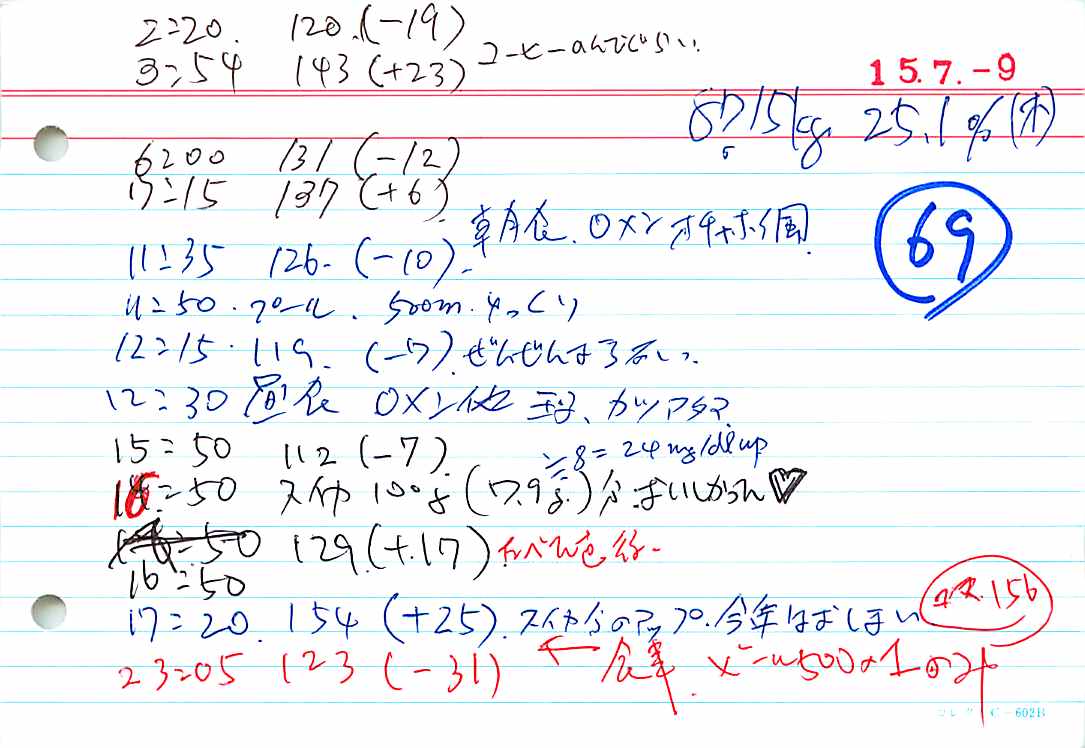 2:20. 120.(-19)
3:54 143 (+23) コーヒーのんでぐらい.
15.7.-9
67.15kg 25.1% (木)
6:00 131 (-12)
7:15 137 (+6)
朝食. 0メン オチャホ1個
69
11:35 126. (-10).
11:50. プール. 500m. ゆっくり
12:15. 119. (-7). ぜんぜん
12:30 昼食 0メン他 玉子、カツ
15:50 112 (-7).
≒8=24mg/dl up
16:50 スイカ 100g (7.9g.)分
16:50 129 (+17) たべた後.
17:20. 154 (+25). スイカ分のアップ. 今年はおしまい
156
23:05 123 (-31) ← 食事. ビール500×1のみ
コレクト C-602B